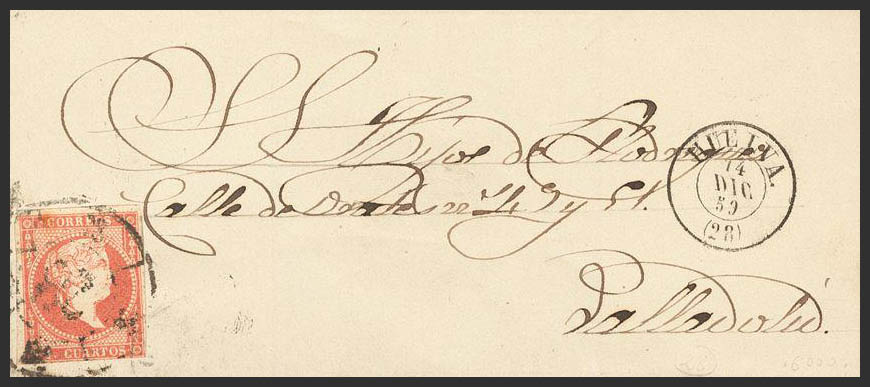 S. S. Hijos de Rodriguez
Calle de nº 49 y 51.
Valladolid.
HUELVA.
14
DIC
59
(28)
CORREOS
CUARTOS